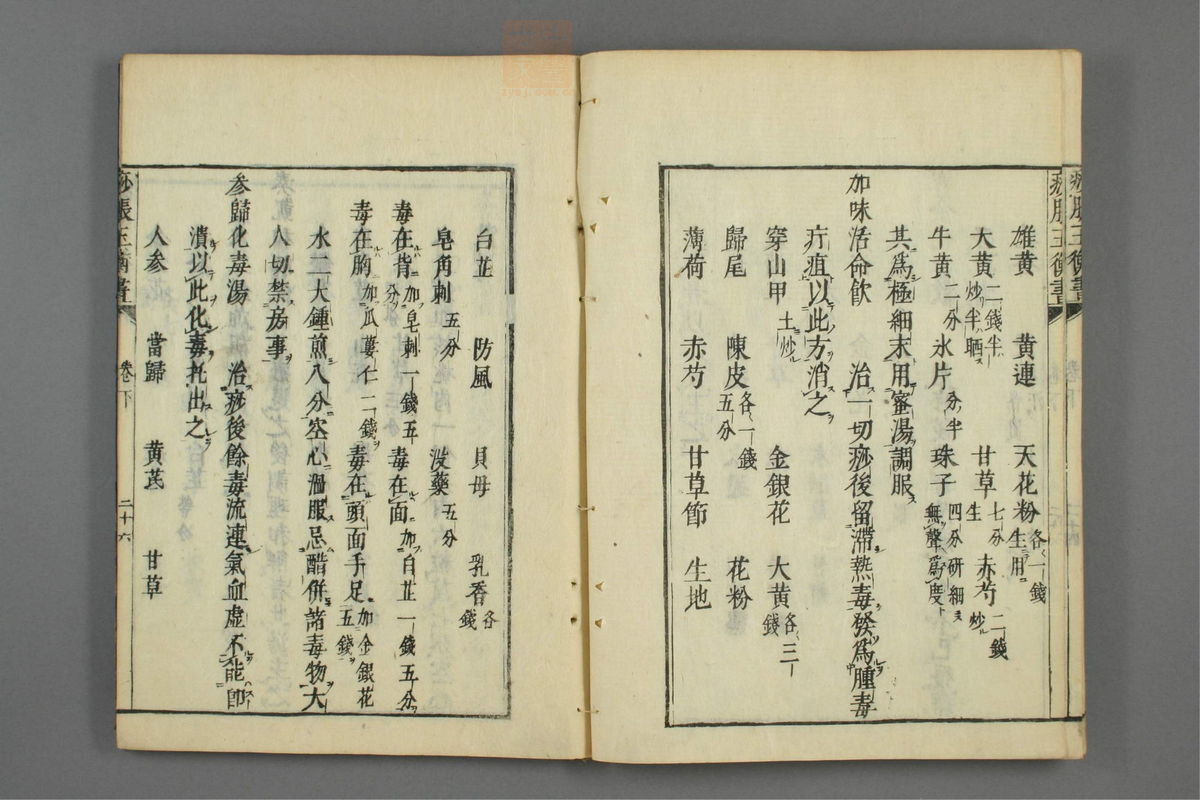 痧脹玉衡書
雄黃 黃連 天花粉各一錢生用
大黃二錢半炒半晒 甘草七分生 赤芍二錢炒
牛黃二分 氷片分半 珠子四分研細無聲爲度
共爲極細末用蜜湯調服
加味活命飲 治一切痧後留滯熱毒發爲腫毒
疔疽以此方消之
穿山甲土炒 金銀花 大黃各三錢
歸尾 陳皮各一錢五分 花粉
薄荷 赤芍 甘草節 生地
白芷 防風 貝母 乳香各錢
皂角刺五分 沒藥五分
毒在背加皂刺一錢五分 毒在面加白芷一錢五分
毒在胸加瓜蔞仁二錢 毒在頭面手足加金銀花五錢
水二大鍾煎八分空心溫服忌醋併諸毒物大
人切禁房事
參歸化毒湯 治痧後餘毒流連氣血虛不能卽
潰以此化毒托出之
人參 當歸 黃芪 甘草
痧脹玉衡書 卷下 二十六